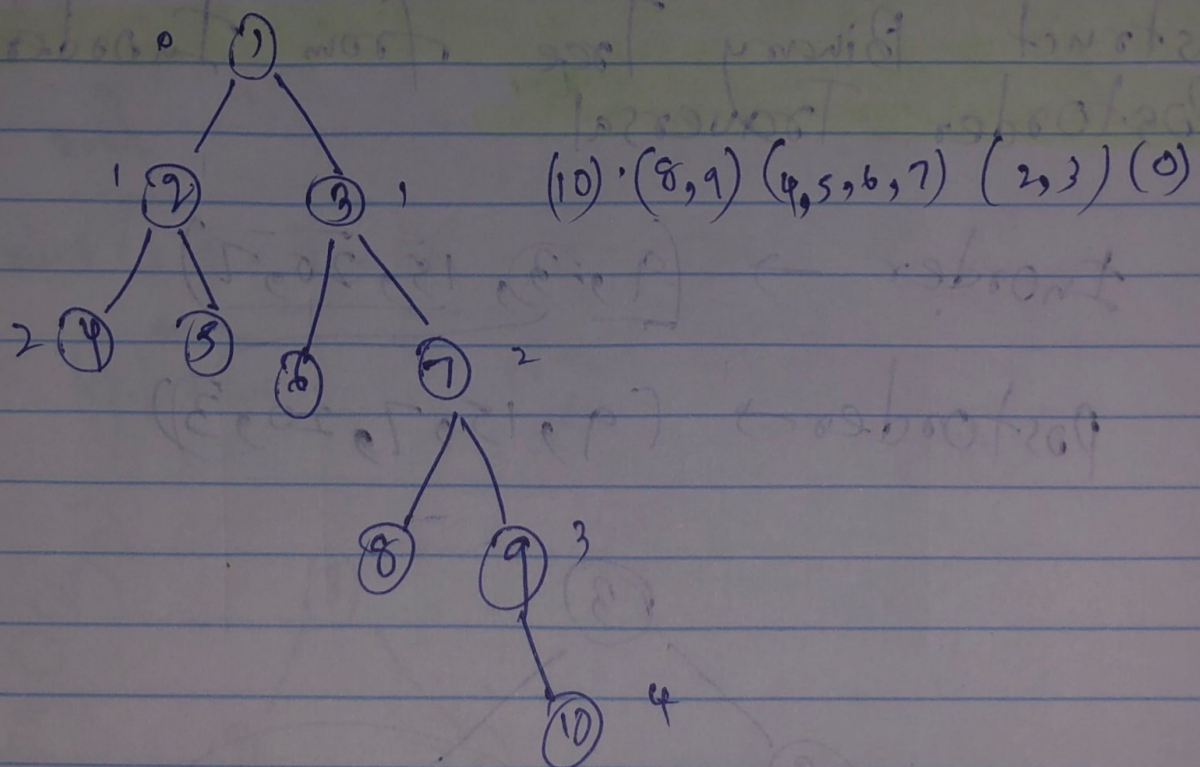 0 1
1 2 3 1
(10) · (8,9) (4,5,6,7) (2,3) (0)
2 4 5 6 7 2
8 9 3
10 4